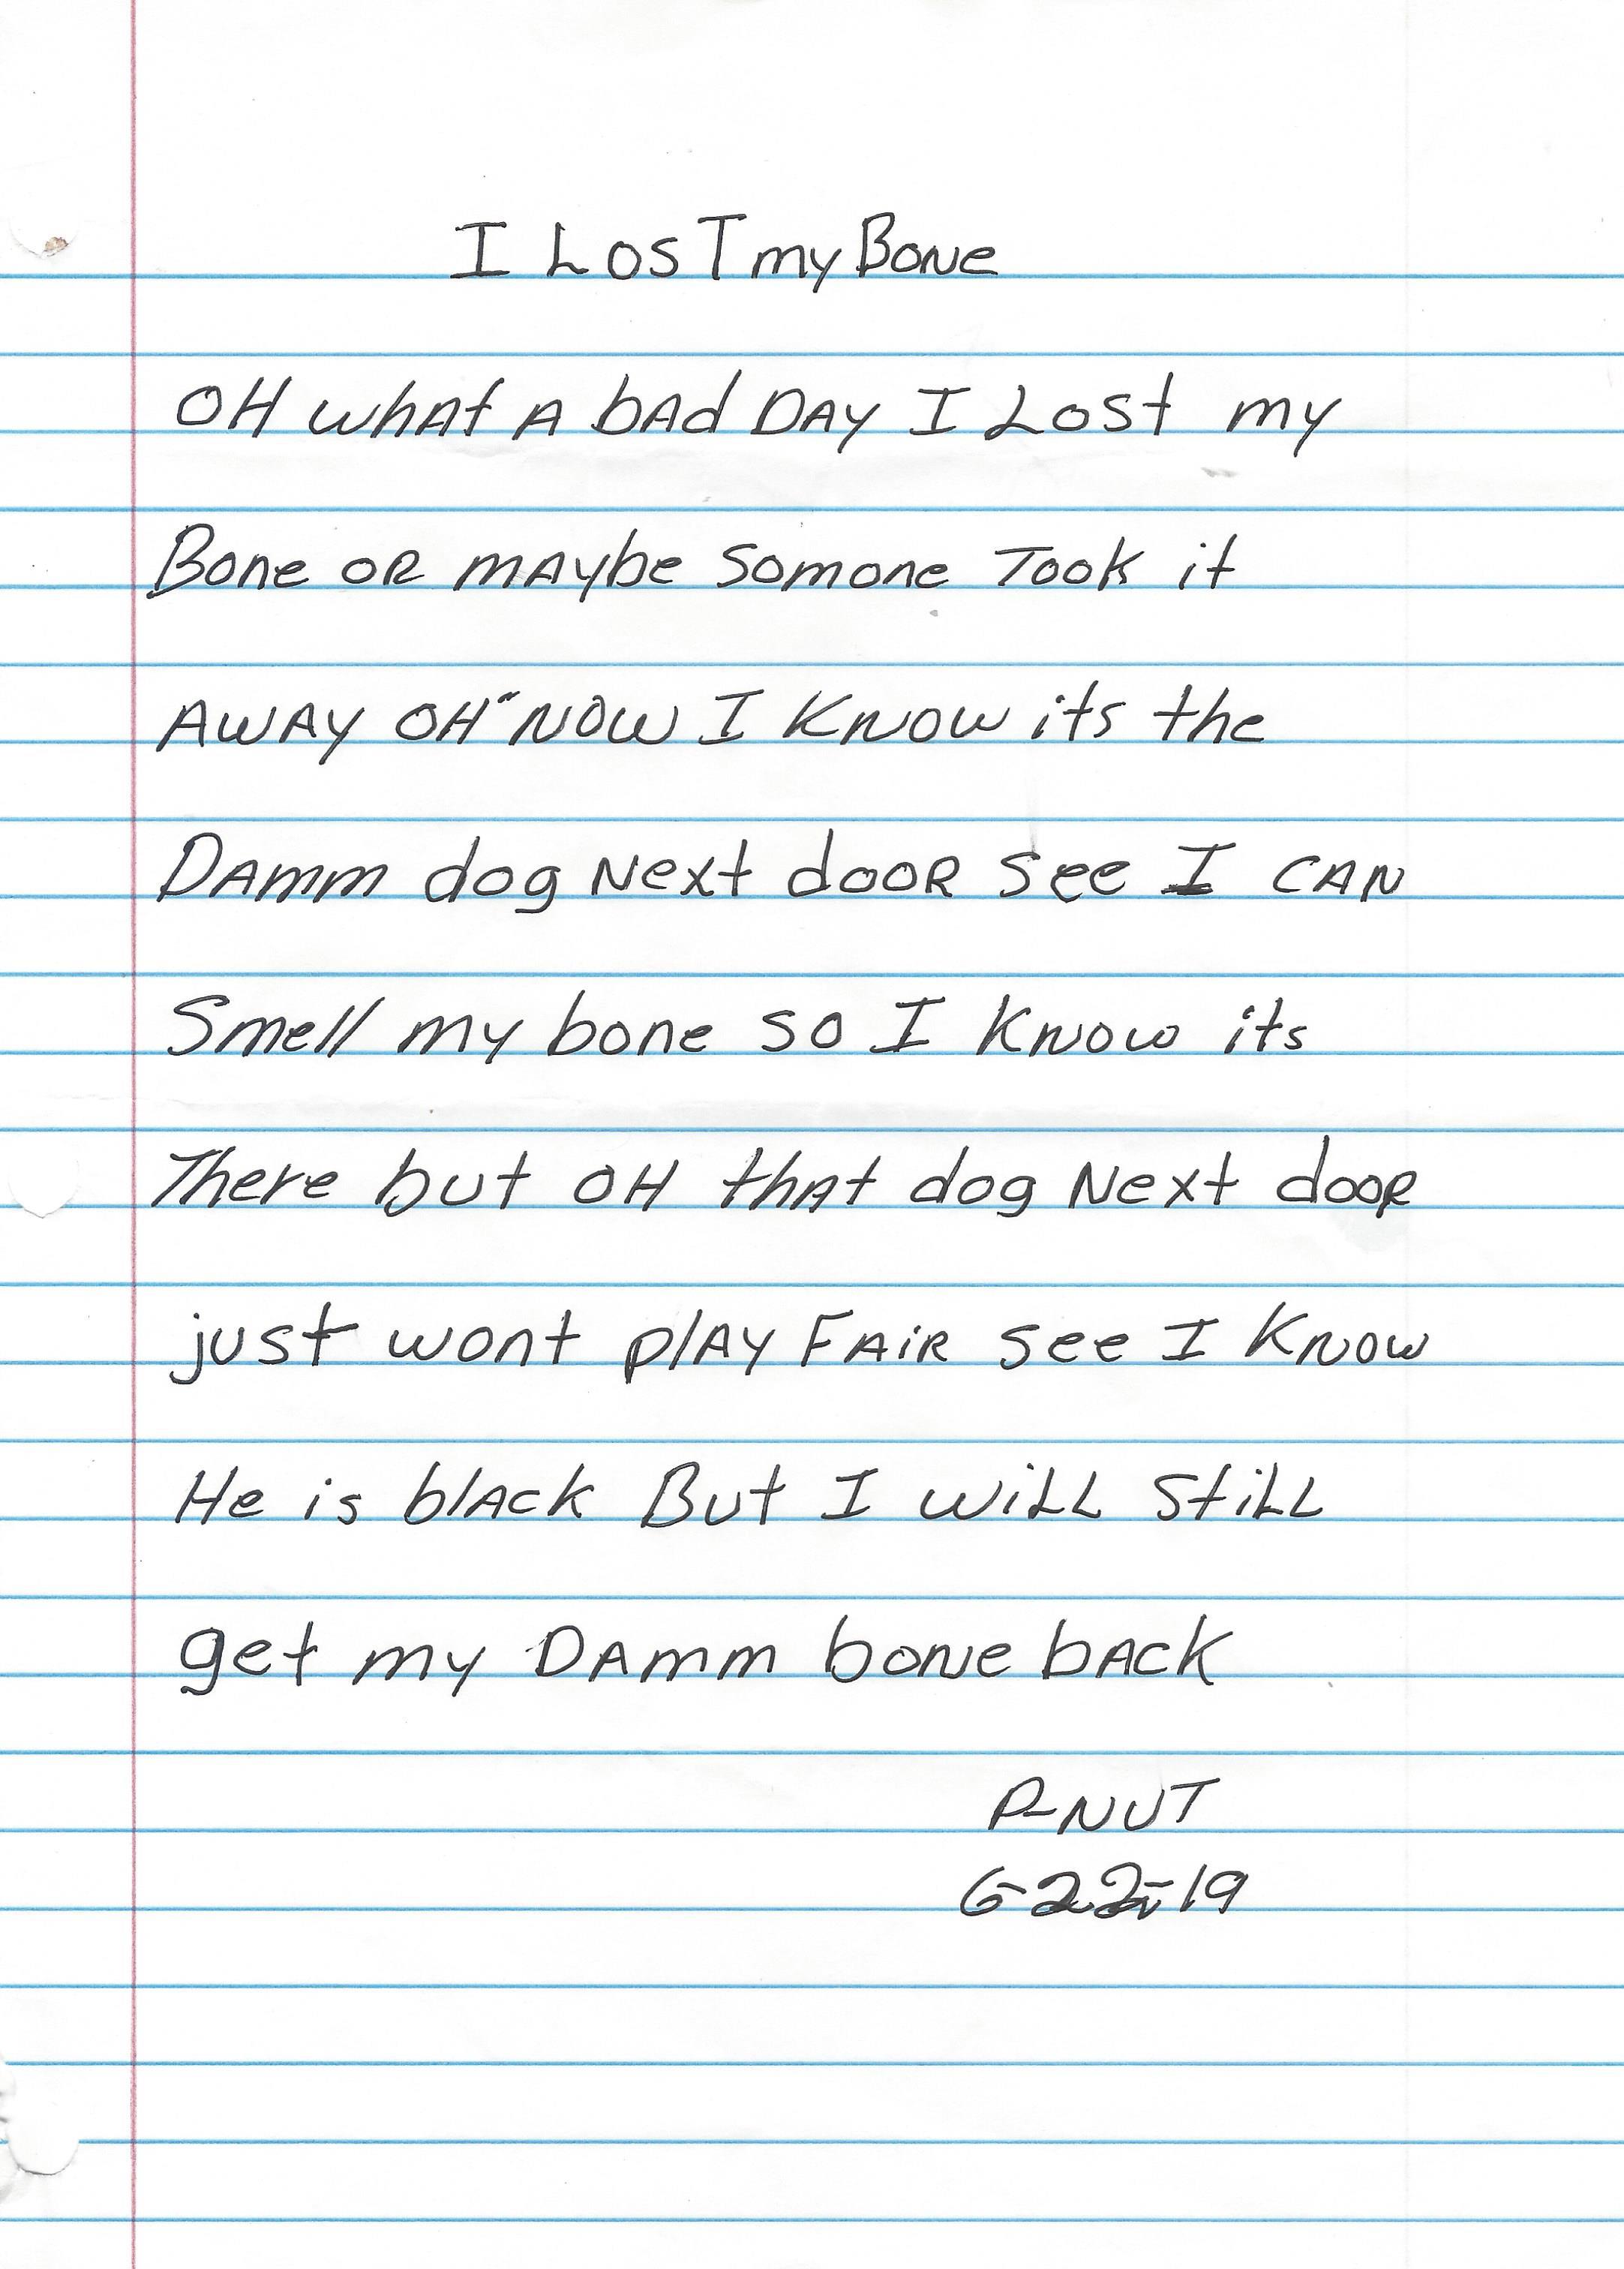 I LosT my Bone
OH whAt A bAd DAy I Lost my
Bone oR mAybe Somone Took it
AwAy OH" Now I Know its the
DAmm dog Next dooR see I CAN
Smell my bone so I Know its
There but OH thAt dog Next dooR
just wont plAy FAiR see I Know
He is blAck But I wiLL StiLL
get my DAmm boNe bAck
P-NUT
6-22-19